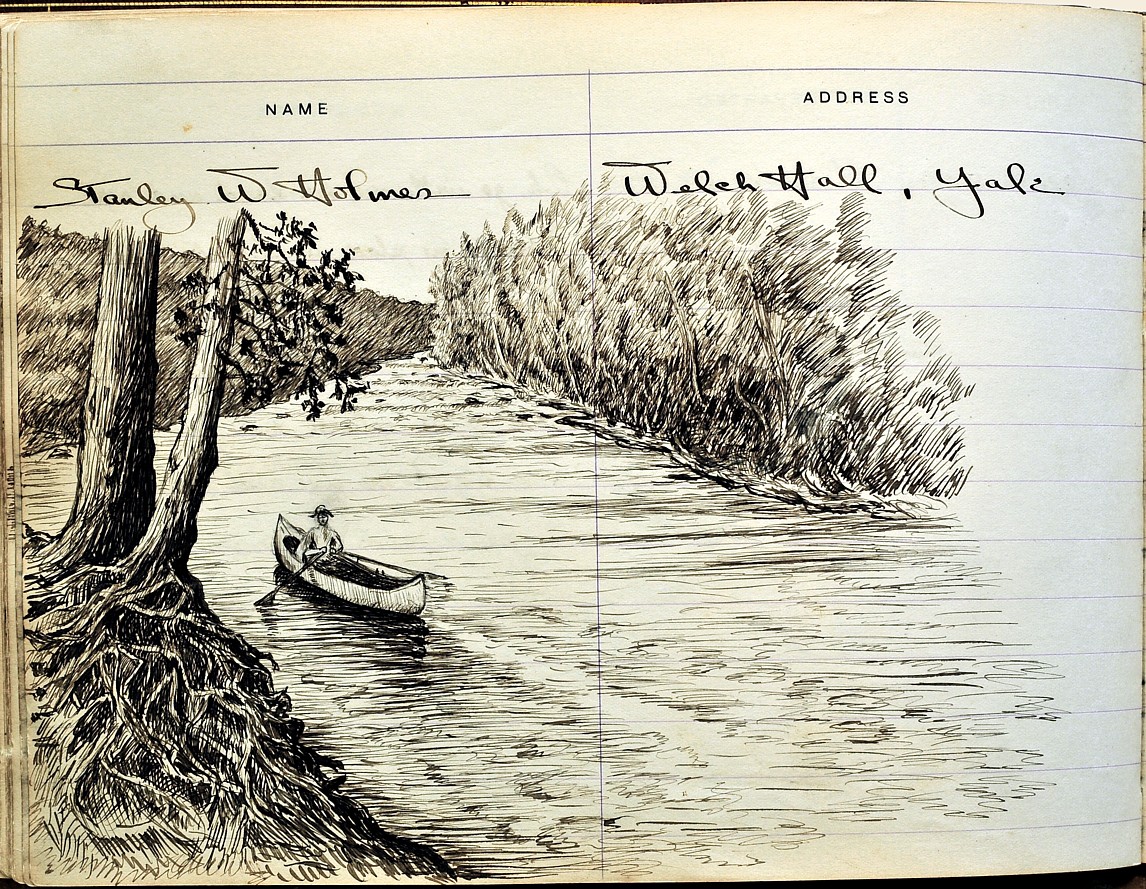 NAME ADDRESS
Stanley W. Holmes Welch Hall, Yale